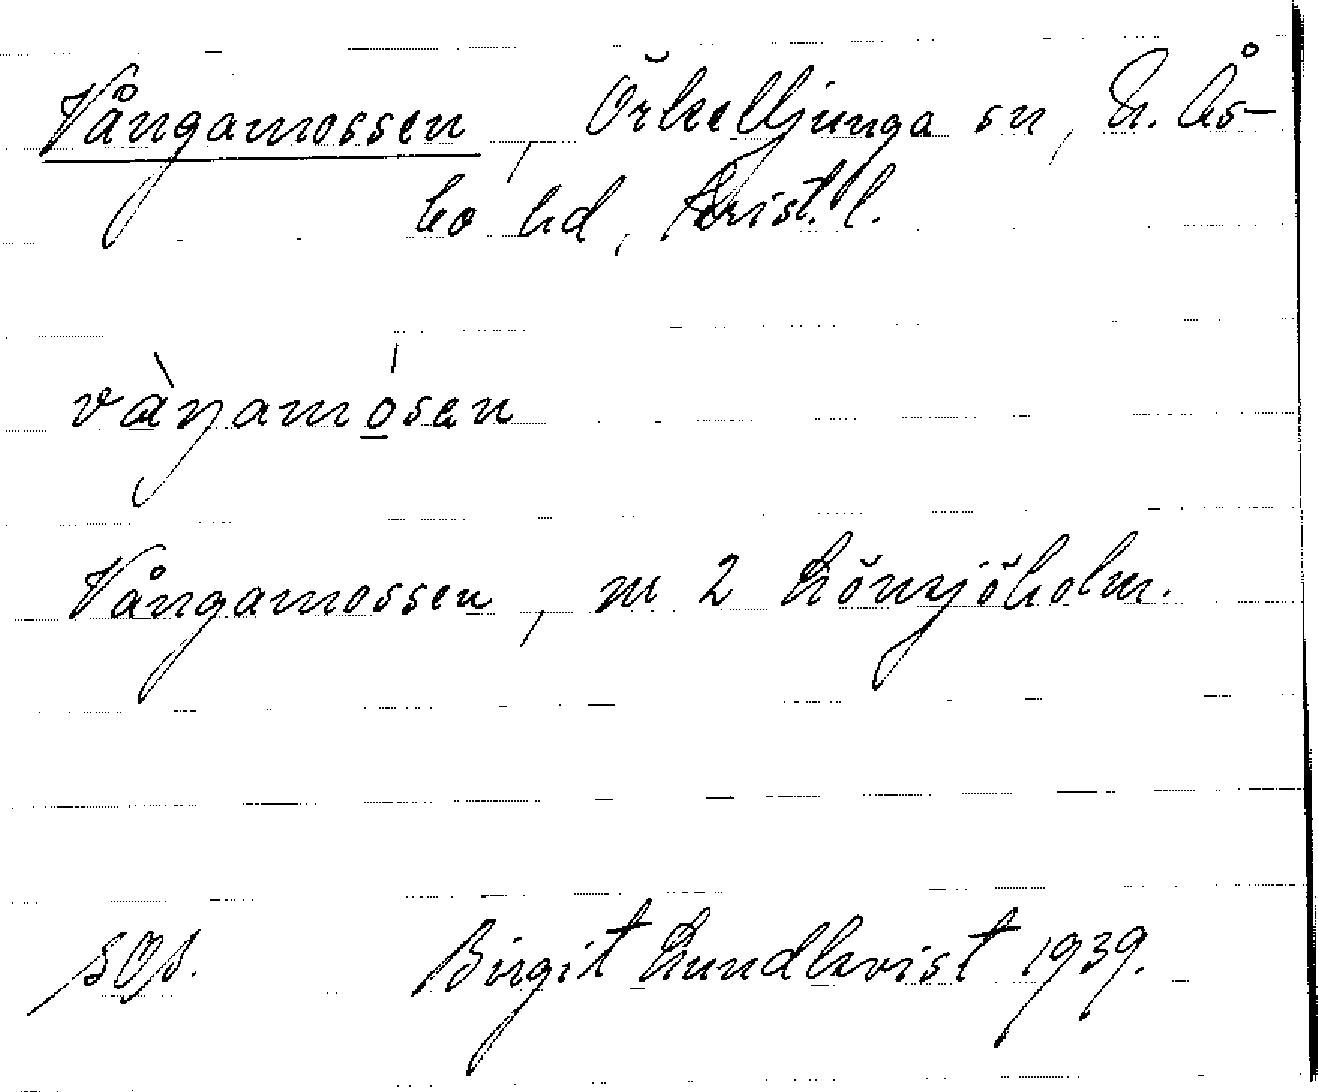 Vångamossen, Örkelljunga sn, N. Ås-
bo hd, Krist. l.
vàŋamósen
Vångamossen, m 2 Lönsjöholm.
Birgit Lundkvist 1939.